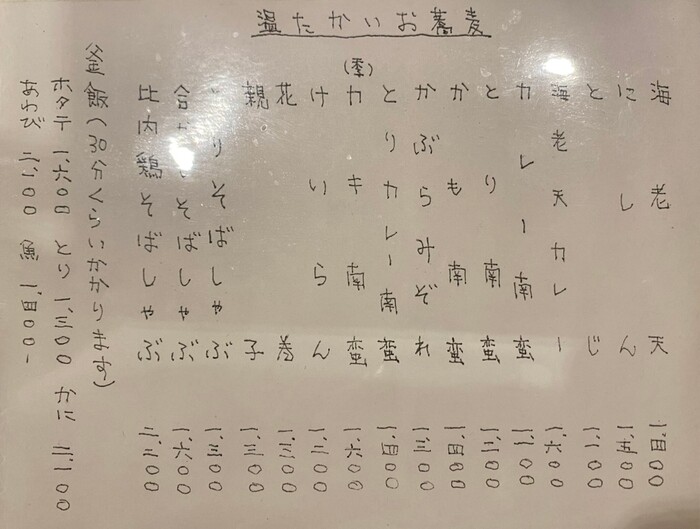 温たかいお蕎麦
海老天 一、四〇〇
にしん 一、五〇〇
とじ 一、一〇〇
海老天カレー 一、六〇〇
カレー南蛮 一、一〇〇
とり南蛮 一、三〇〇
かも南蛮 一、四〇〇
かぶらみぞれ 一、三〇〇
とりカレー南蛮 一、四〇〇
(季)カキ南蛮 一、六〇〇
けいらん 一、二〇〇
花巻 一、三〇〇
親子 一、三〇〇
りそばしゃぶ 一、三〇〇
合 そばしゃぶ 一、六〇〇
比内鶏そばしゃぶ 二、二〇〇
釜飯(30分くらいかかります)
ホタテ 一、六〇〇 とり 一、三〇〇 かに 二、一〇〇
あわび 二、一〇〇 魚 一、四〇〇-